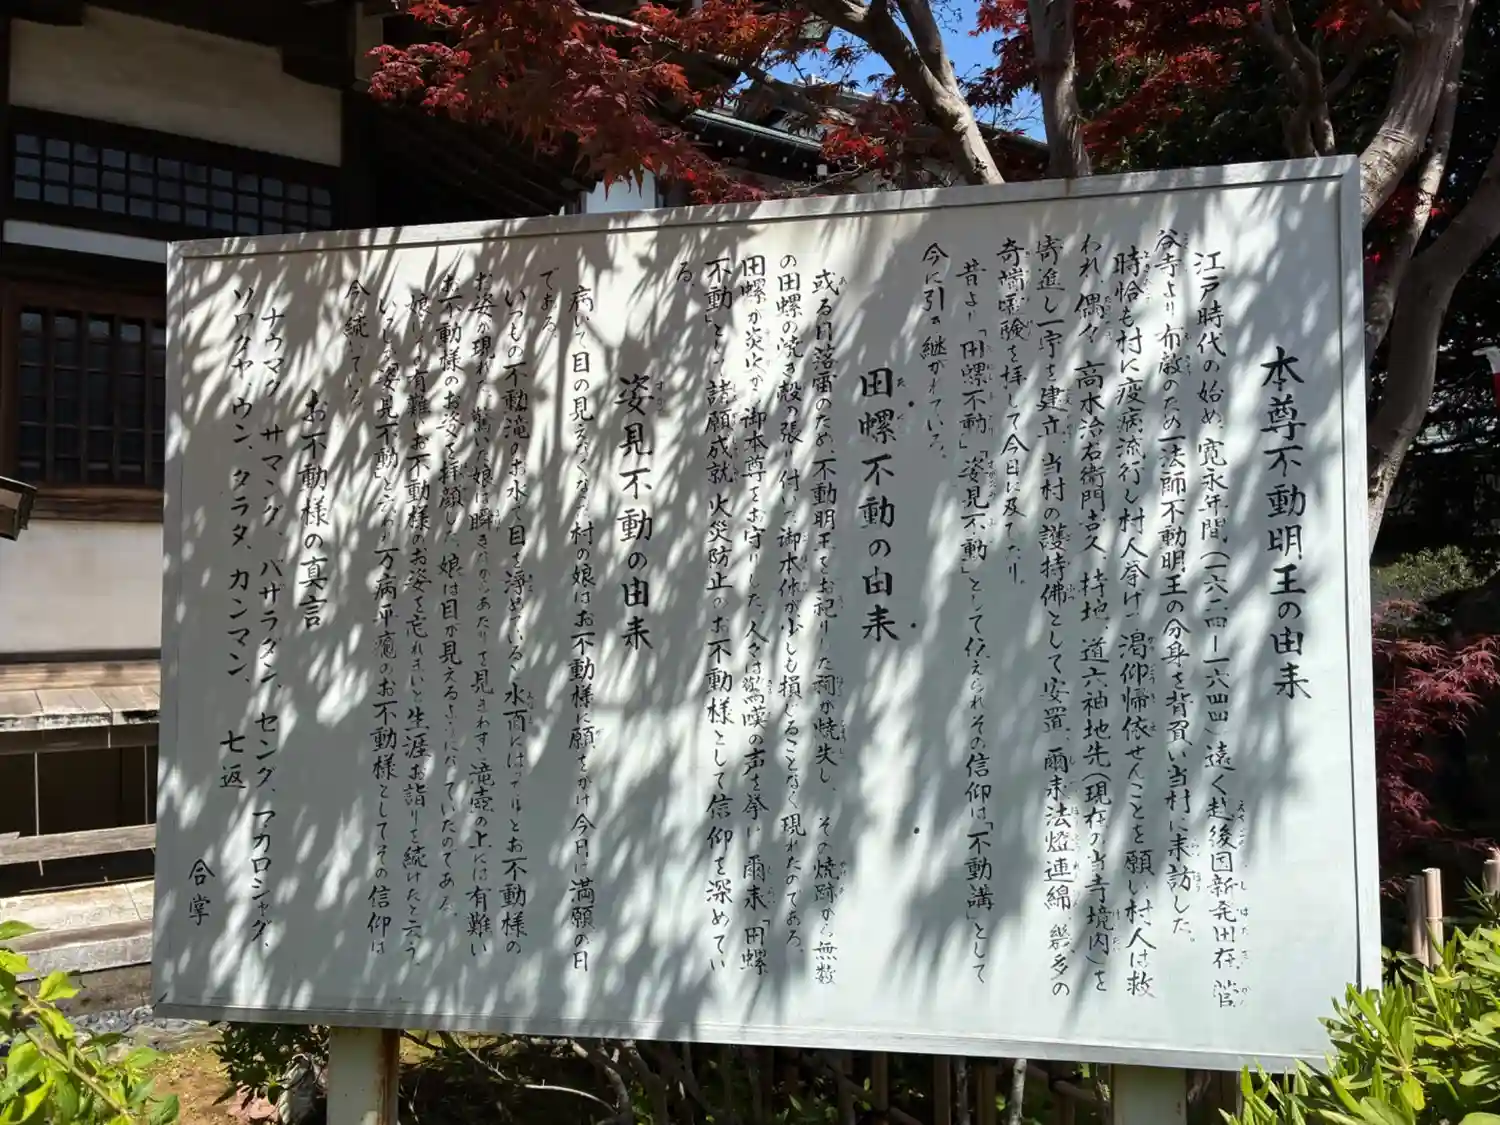 本尊不動明王の由来
江戸時代の始め、寛永年間、(一六二四ー一六四四)遠く越後国新発田在、菅
谷寺より布教のため一法師不動明王の分身を背負い当村に来訪した。
時恰も村に疫病流行し村人挙げて渇仰帰依せんことを願い村人は救
われ、偶々、高水治右衛門吉久、持地、道六神地先(現在の当寺境内)を
寄進し一宇を建立、当村の護持佛として安置、爾来法燈連綿、幾多の
奇端霊験を拝して今日に及てたり。
昔より「田螺不動」「姿見不動」として伝えられその信仰は「不動講」として
今に引き継がれている。
田螺不動の由来
或る日落雷のため、不動明王をお祀りした祠が焼失し、その焼跡から無数
の田螺の焼き殻の張り付いた御本体が少しも損じることなく現れたのである。
田螺が炎火から御本尊をお守りした、人々は驚嘆の声を挙げ爾来「田螺
不動」として諸願成就、火災防止のお不動様として信仰を深めてい
る。
姿見不動の由来
病いで目の見えなくなった村の娘はお不動様に願をかけ今日は満願の日
である。
いつもの不動滝のお水で目を浄めていると水面にはっきりとお不動様の
お姿が現れた、驚いた娘は瞬きながらあたりを見まわすと滝壺の上には有難い
お不動様のお姿を拝顔した、娘は目が見えるようになっていたのである。
娘はこの有難いお不動様のお姿を忘れまいと生涯お詣りを続けたと云う、
いらい「姿見不動」と云われ万病平癒のお不動様としてその信仰は
今も続いている。
お不動様の真言
ナウマク、サマンダ、バザラダン、センダ、マカロシャダ、
ソワタヤ、ウン、タラタ、カンマン、 七返
合掌